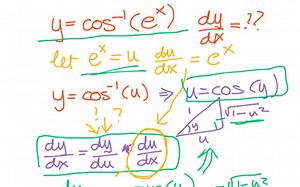 y = cos⁻¹(eˣ) dy/dx = ??
let eˣ = u du/dx = eˣ
y = cos⁻¹(u) ⇒ u = cos(y)
? ? 1 √1-u²
y u
dy/dx = dy/du * du/dx